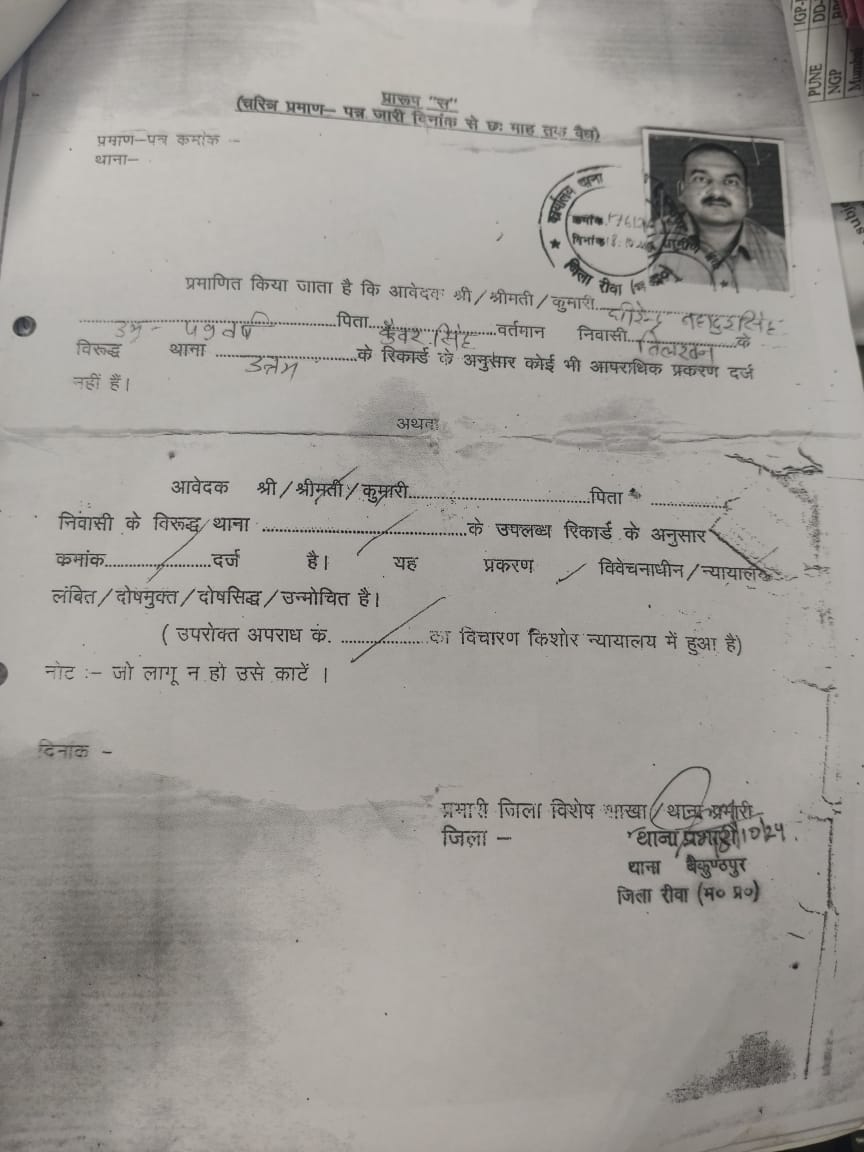 प्रारूप "स"
(चरित्र प्रमाण– पत्र जारी दिनांक से छः माह तक वैध)
प्रमाण–पत्र कमांक –
थाना–
कार्यालय थाना
कमांक
दिनांक
जिला रीवा
प्रमाणित किया जाता है कि आवेदक श्री/श्रीमती/कुमारी
पिता कुँवर सिंह वर्तमान निवासी के
विरूद्ध थाना के रिकार्ड के अनुसार कोई भी आपराधिक प्रकरण दर्ज
नहीं हैं।
अथवा
आवेदक श्री/श्रीमती/कुमारी पिता
निवासी के विरूद्ध थाना के उपलब्ध रिकार्ड के अनुसार
कमांक दर्ज है। यह प्रकरण विवेचनाधीन/न्यायालय
लंबित/दोषमुक्त/दोषसिद्ध/उन्मोचित है।
( उपरोक्त अपराध कं. का विचारण किशोर न्यायालय में हुआ है)
नोट :– जो लागू न हो उसे काटें ।
दिनांक –
प्रभारी जिला विशेष शाखा/थाना प्रभारी
जिला –
थाना प्रभारी
थाना बैकुण्ठपुर
जिला रीवा (म० प्र०)
PUNE
NGP